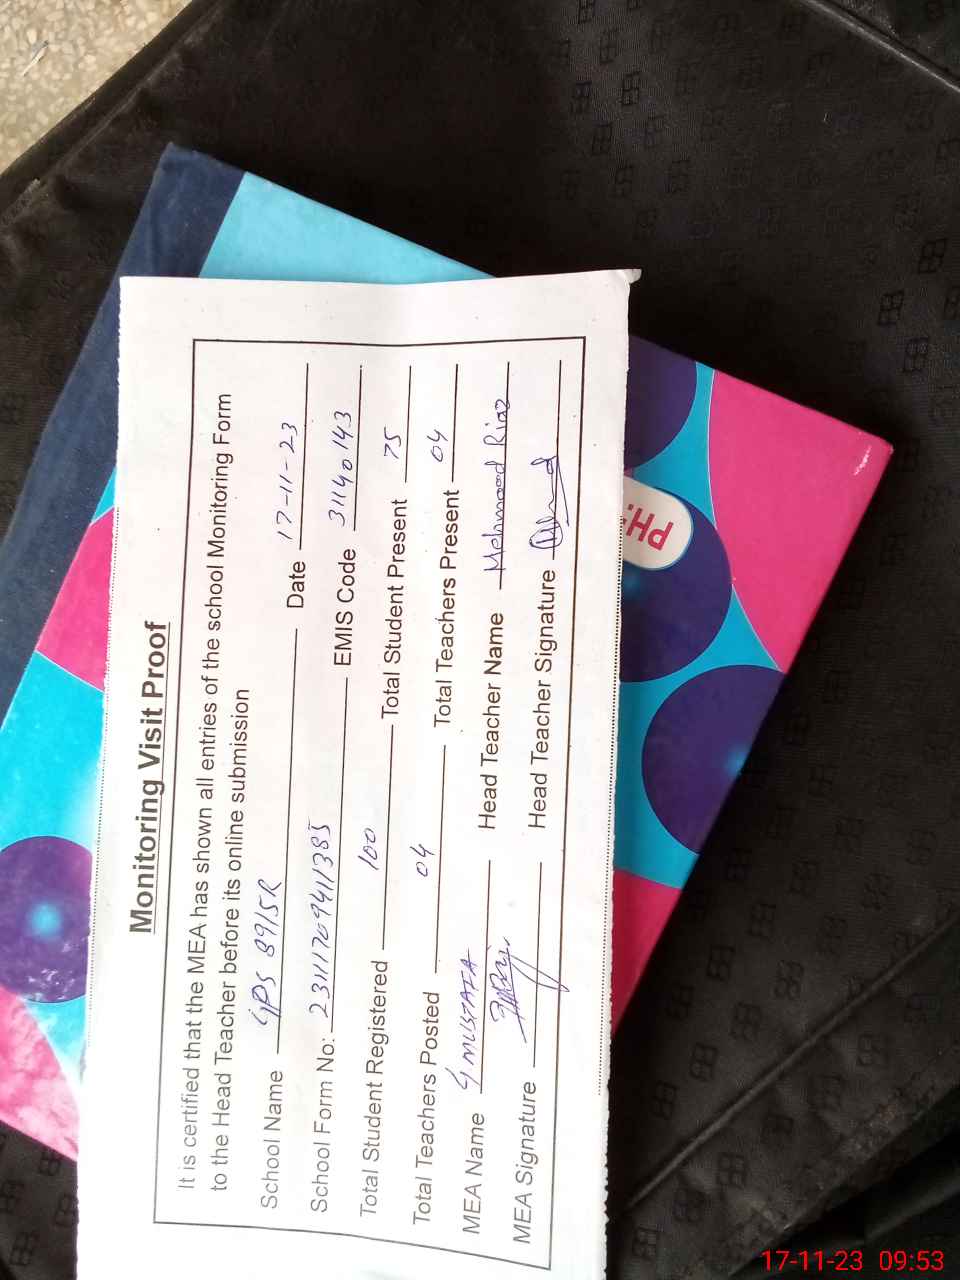 Monitoring Visit Proof
It is certified that the MEA has shown all entries of the school Monitoring Form
to the Head Teacher before its online submission
School Name GPS 89/5R Date 17-11-23
School Form No: 23111709411385 EMIS Code 31140143
Total Student Registered 100 Total Student Present 75
Total Teachers Posted 04 Total Teachers Present 04
MEA Name G MUSTAFA Head Teacher Name Mehmood Riaz
MEA Signature Head Teacher Signature
PH:
17-11-23 09:53